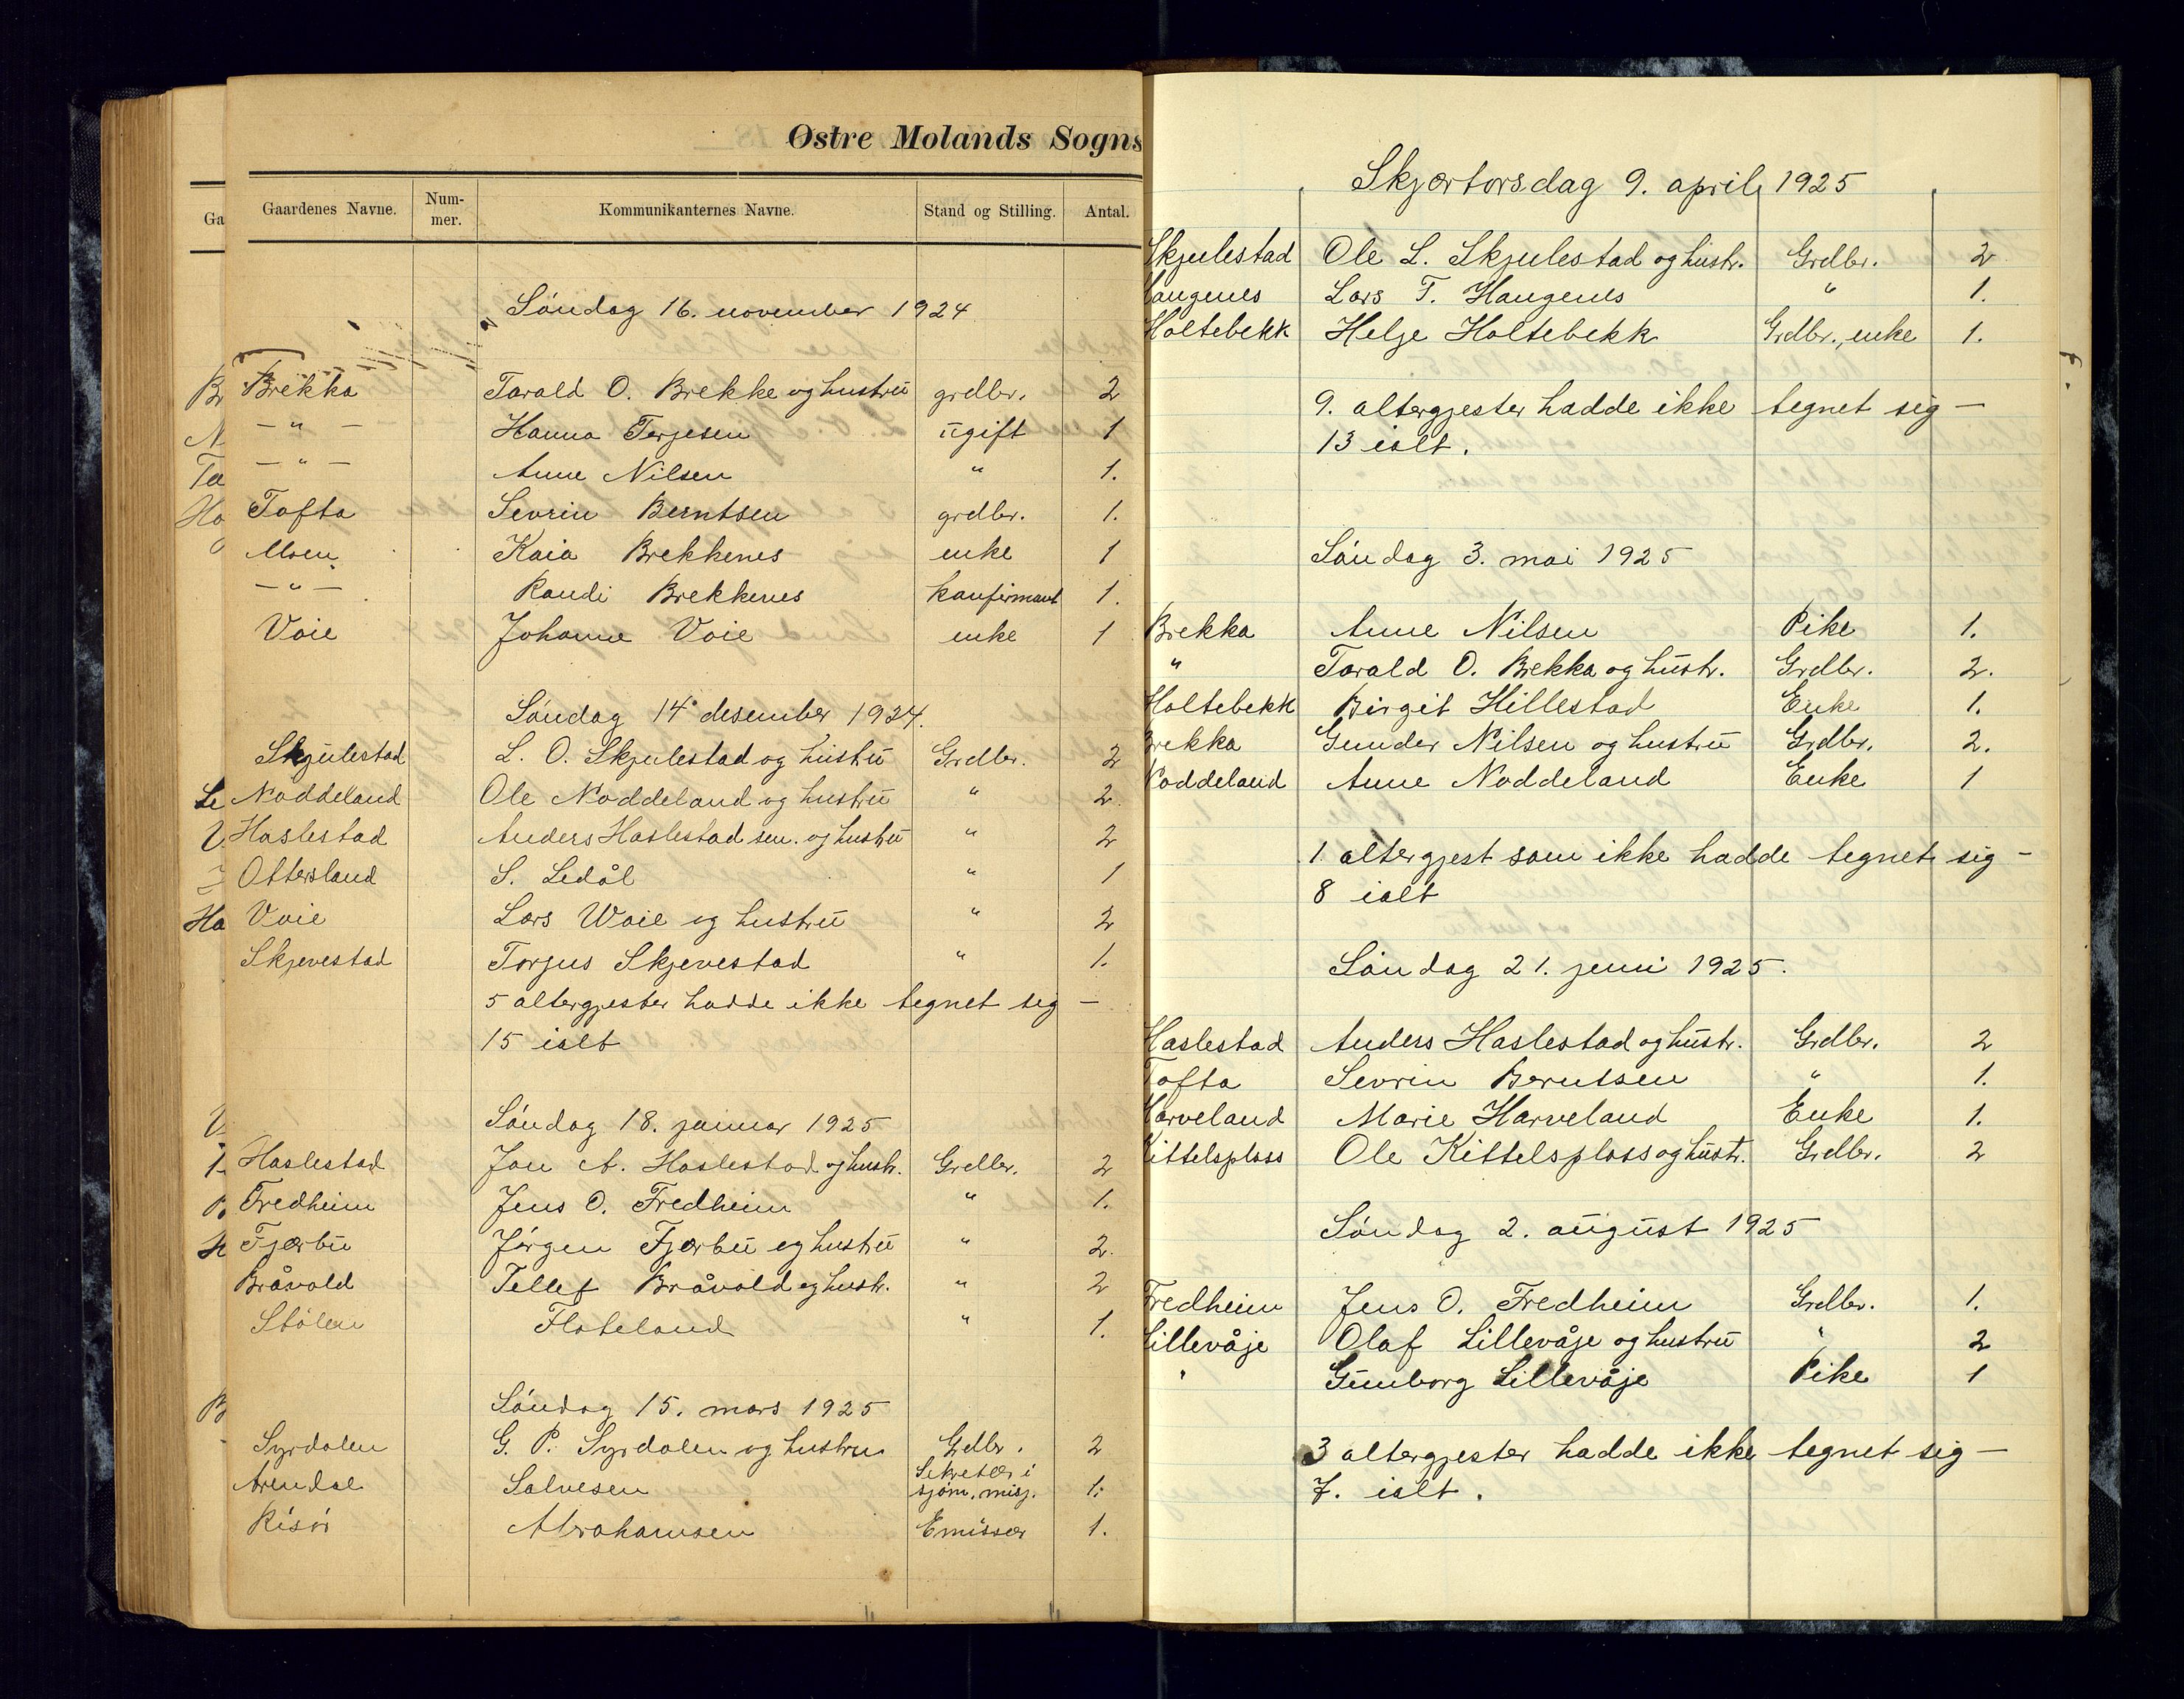 Østre Molands Sogns
Gaardenes Navne. Num-mer. Kommunikanternes Navne. Stand og Stilling. Antal.
Søndag 16. november 1924
Brekka Tarald O. Brekke og hustru grdbr. 2
— " — Hanna Terjesen ugift 1
— " — Anne Nilsen " 1.
Tofta Sevrin Berntsen grdbr. 1.
Moen Kaia Brekkenes enke 1
— " — Randi Brekkenes konfirmant 1.
Voie Johanne Voie enke 1
Søndag 14 desember 1924.
Skjulestad L. O. Skjulestad og hustru Grdbr. 2
Noddeland Ole Noddeland og hustru " 2.
Haslestad Anders Haslestad sen. og hustru " 2
Ottersland S. Ledål " 1
Voie Lars Woie og hustru " 2
Skjevestad Torjus Skjevestad " 1.
5 altergjester hadde ikke tegnet sig —
15 ialt
Søndag 18. januar 1925
Haslestad Jon A. Haslestad og hustr. Grdbr. 2
Fredheim Jens O. Fredheim " 1.
Fjærbu Jørgen Fjærbu og hustru " 2.
Bråvold Tellef Bråvold og hustr. " 2
Stølen Flateland " 1.
Søndag 15. mars 1925
Syrdalen G. P. Syrdalen og hustru Grdbr. 2
Arendal Salvesen Sekretær i sjøm. misj. 1.
Risør Abrahamsen Emissær 1.
Skjærtorsdag 9. april 1925
Skjulestad Ole L. Skjulestad og hustr. Grdbr. 2
Haugenes Lars T. Haugenes " 1.
Holtebekk Helge Holtebekk Grdbr., enke 1.
9. altergjester hadde ikke tegnet sig —
13 ialt.
Søndag 3. mai 1925
Brekka Anne Nilsen Pike 1.
" Tarald O. Brekka og hustr. Grdbr. 2.
Holtebekk Birgit Hillestad Enke 1.
Brekka Gunder Nilsen og hustru Grdbr. 2.
Noddeland Anne Noddeland Enke 1
1 altergjest som ikke hadde tegnet sig —
8 ialt
Søndag 21. juni 1925.
Haslestad Anders Haslestad og hustr. Grdbr. 2
Tofta Sevrin Berntsen " 1.
Harveland Marie Harveland Enke 1.
Kittelsplass Ole Kittelsplass og hustr. Grdbr. 2
Søndag 2. august 1925
Fredheim Jens O. Fredheim Grdbr. 1.
Lillevåje Olaf Lillevåje og hustru " 2
" Gunborg Lillevåje Pike 1
3 altergjester hadde ikke tegnet sig —
7. ialt.